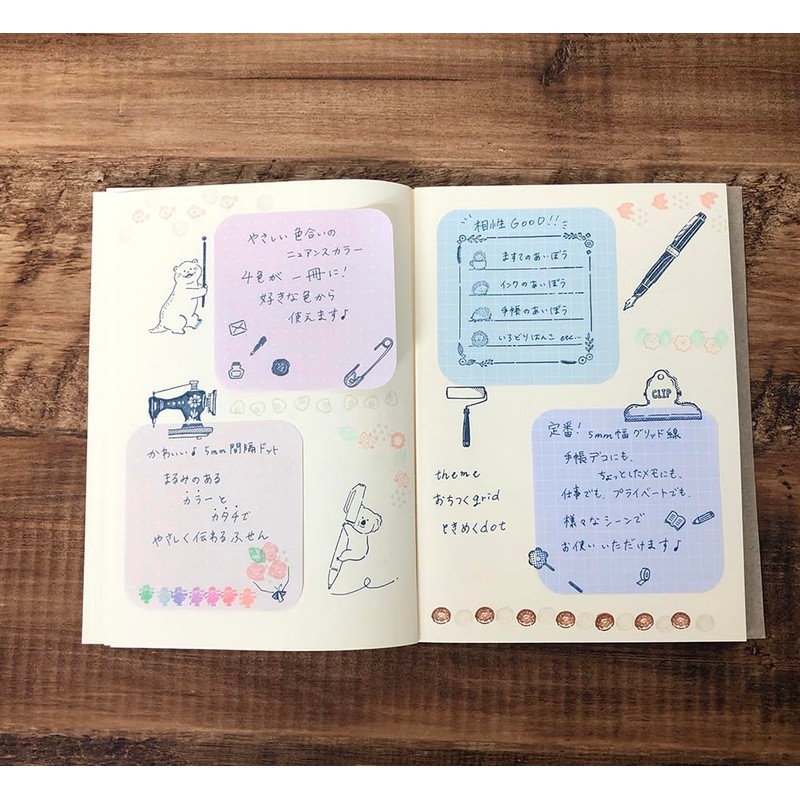 やさしい色合いの
ニュアンスカラー
4色が一冊に!
好きな色から
使えます♪
かわいい♪5mm間隔ドット
まるみのある
カラーと
カタチで
やさしく伝わるふせん
相性GOOD!!
ますてのあいぼう
インクのあいぼう
手帳のあいぼう
いろどりはんこ etc...
CLIP
定番! 5mm幅グリッド線
手帳デコにも、
ちょっとしたメモにも、
仕事でも、プライベートでも、
様々なシーンで
お使いいただけます♪
theme
おちつくgrid
ときめくdot